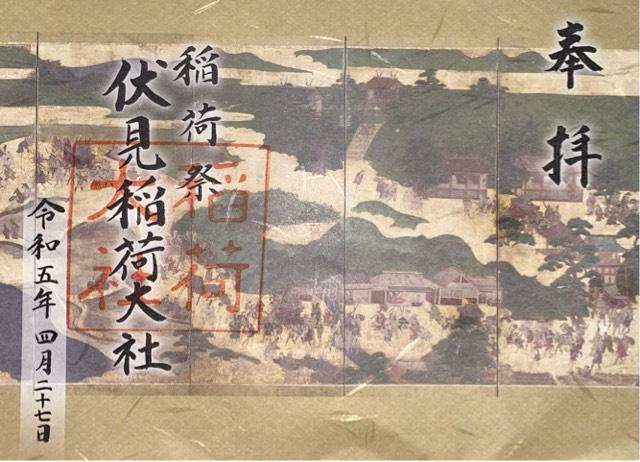 奉拝
稲荷祭
伏見稲荷大社
稲荷
大社
令和五年 四月二十七日